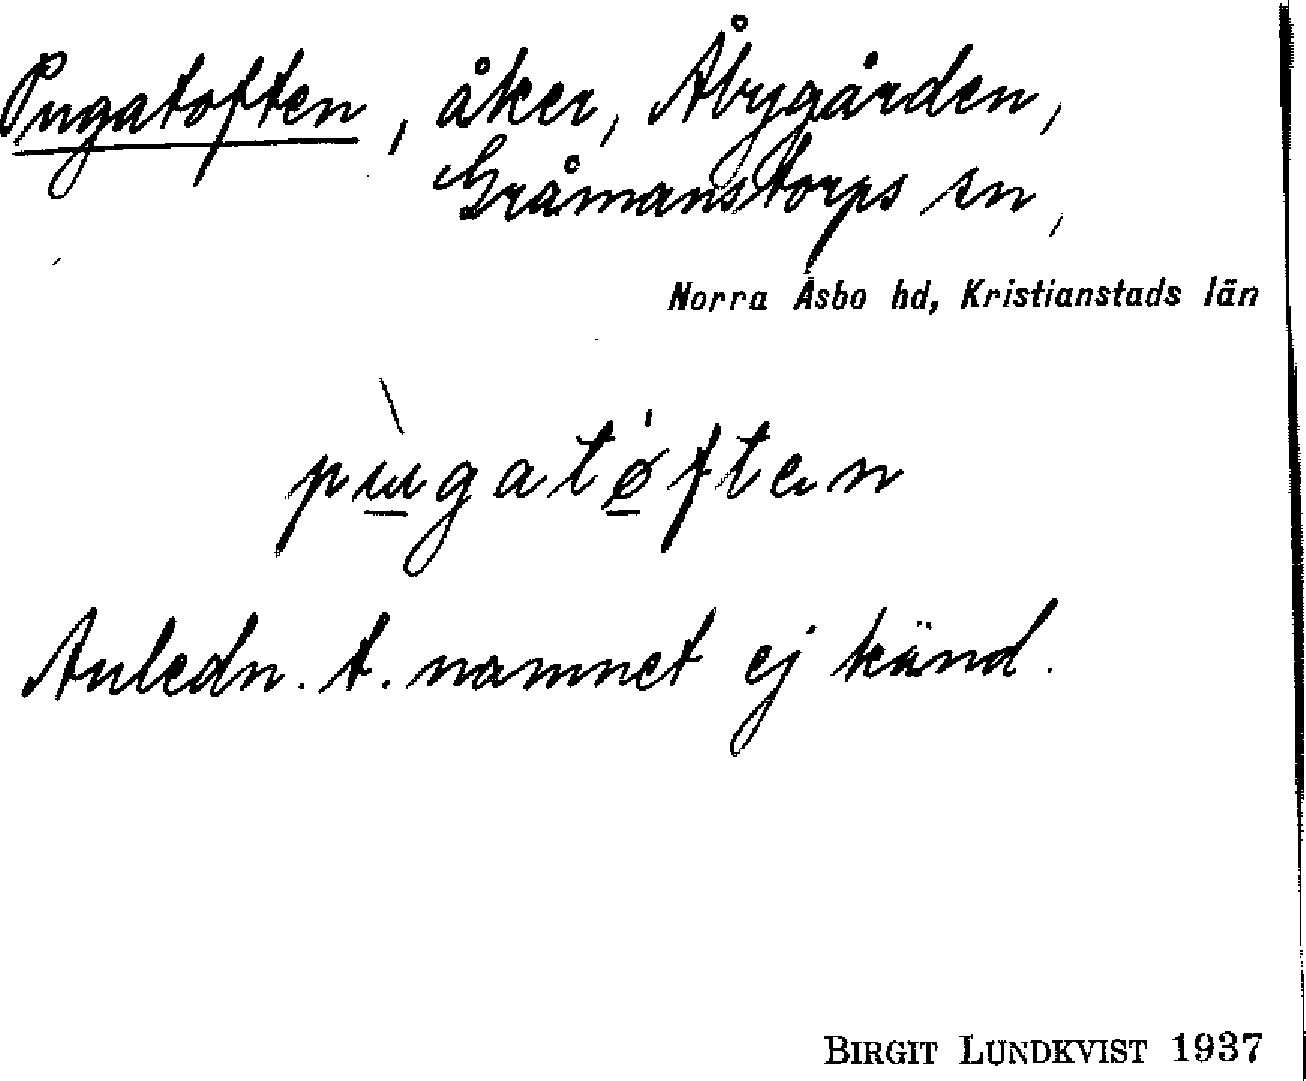 Pugatoften, åker, Åbygården,
Gråmanstorps sn,
Norra Åsbo hd, Kristianstads län
pɯ̱̀gatǿ̱ften
Anledn. t. namnet ej känd.
BIRGIT LUNDKVIST 1937